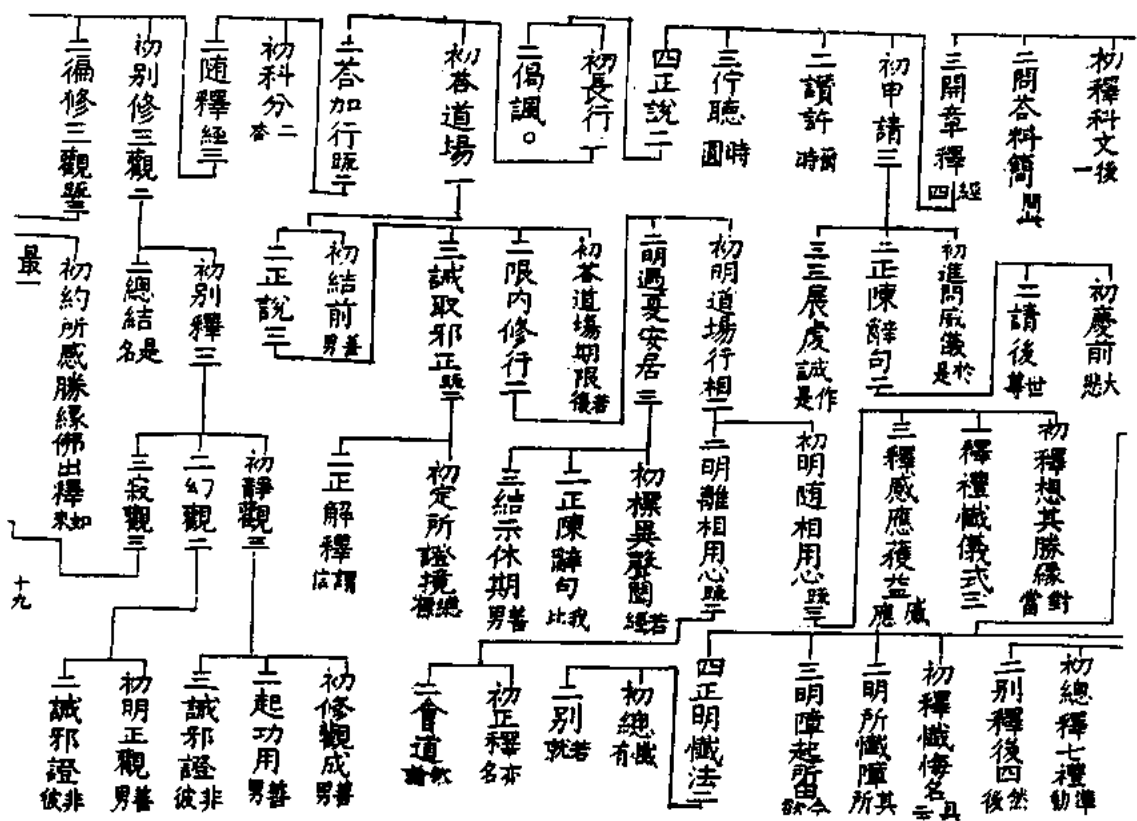 初釋科文後一
二問答料簡問此
三開章釋經四
初申請三
二讚許爾時
三佇聽時圓
四正說二
初長行二
二偈諷。
初荅道場一
二荅加行疏二
初科分二荅
二隨釋經三
初別修三觀二
二徧修三觀疏二
初慶前大悲
二請後世尊
初進問威儀於是
二正陳辭句二
三三展虔誠作是
初明道場行相二
二明遇夏安居三
初荅道場期限若後
二限內修行二
三誡取邪正疏二
初結前善男
二正說三
初別釋三
二總結是名
初約所感勝緣佛出釋如來
最一
初釋想其勝緣對當
二釋禮懺儀式三
三釋感應獲益感應
初明隨相用心疏三
二明離相用心疏二
初標異聲聞若經
二正陳辭句我比
三結示休期善男
初定所證境總標
二正解釋謂信
初靜觀三
二幻觀二
三寂觀三
十九
初總釋七禮準勤
二別釋後四然後
初釋懺悔名
二明所懺障其所
三明障起所由今欲
四正明懺法二
初總懺有
二別若就
初正釋亦名
二會道
初修觀成善男
二起功用善男
三誡邪證非彼
初明正觀善男
二誡邪證非彼